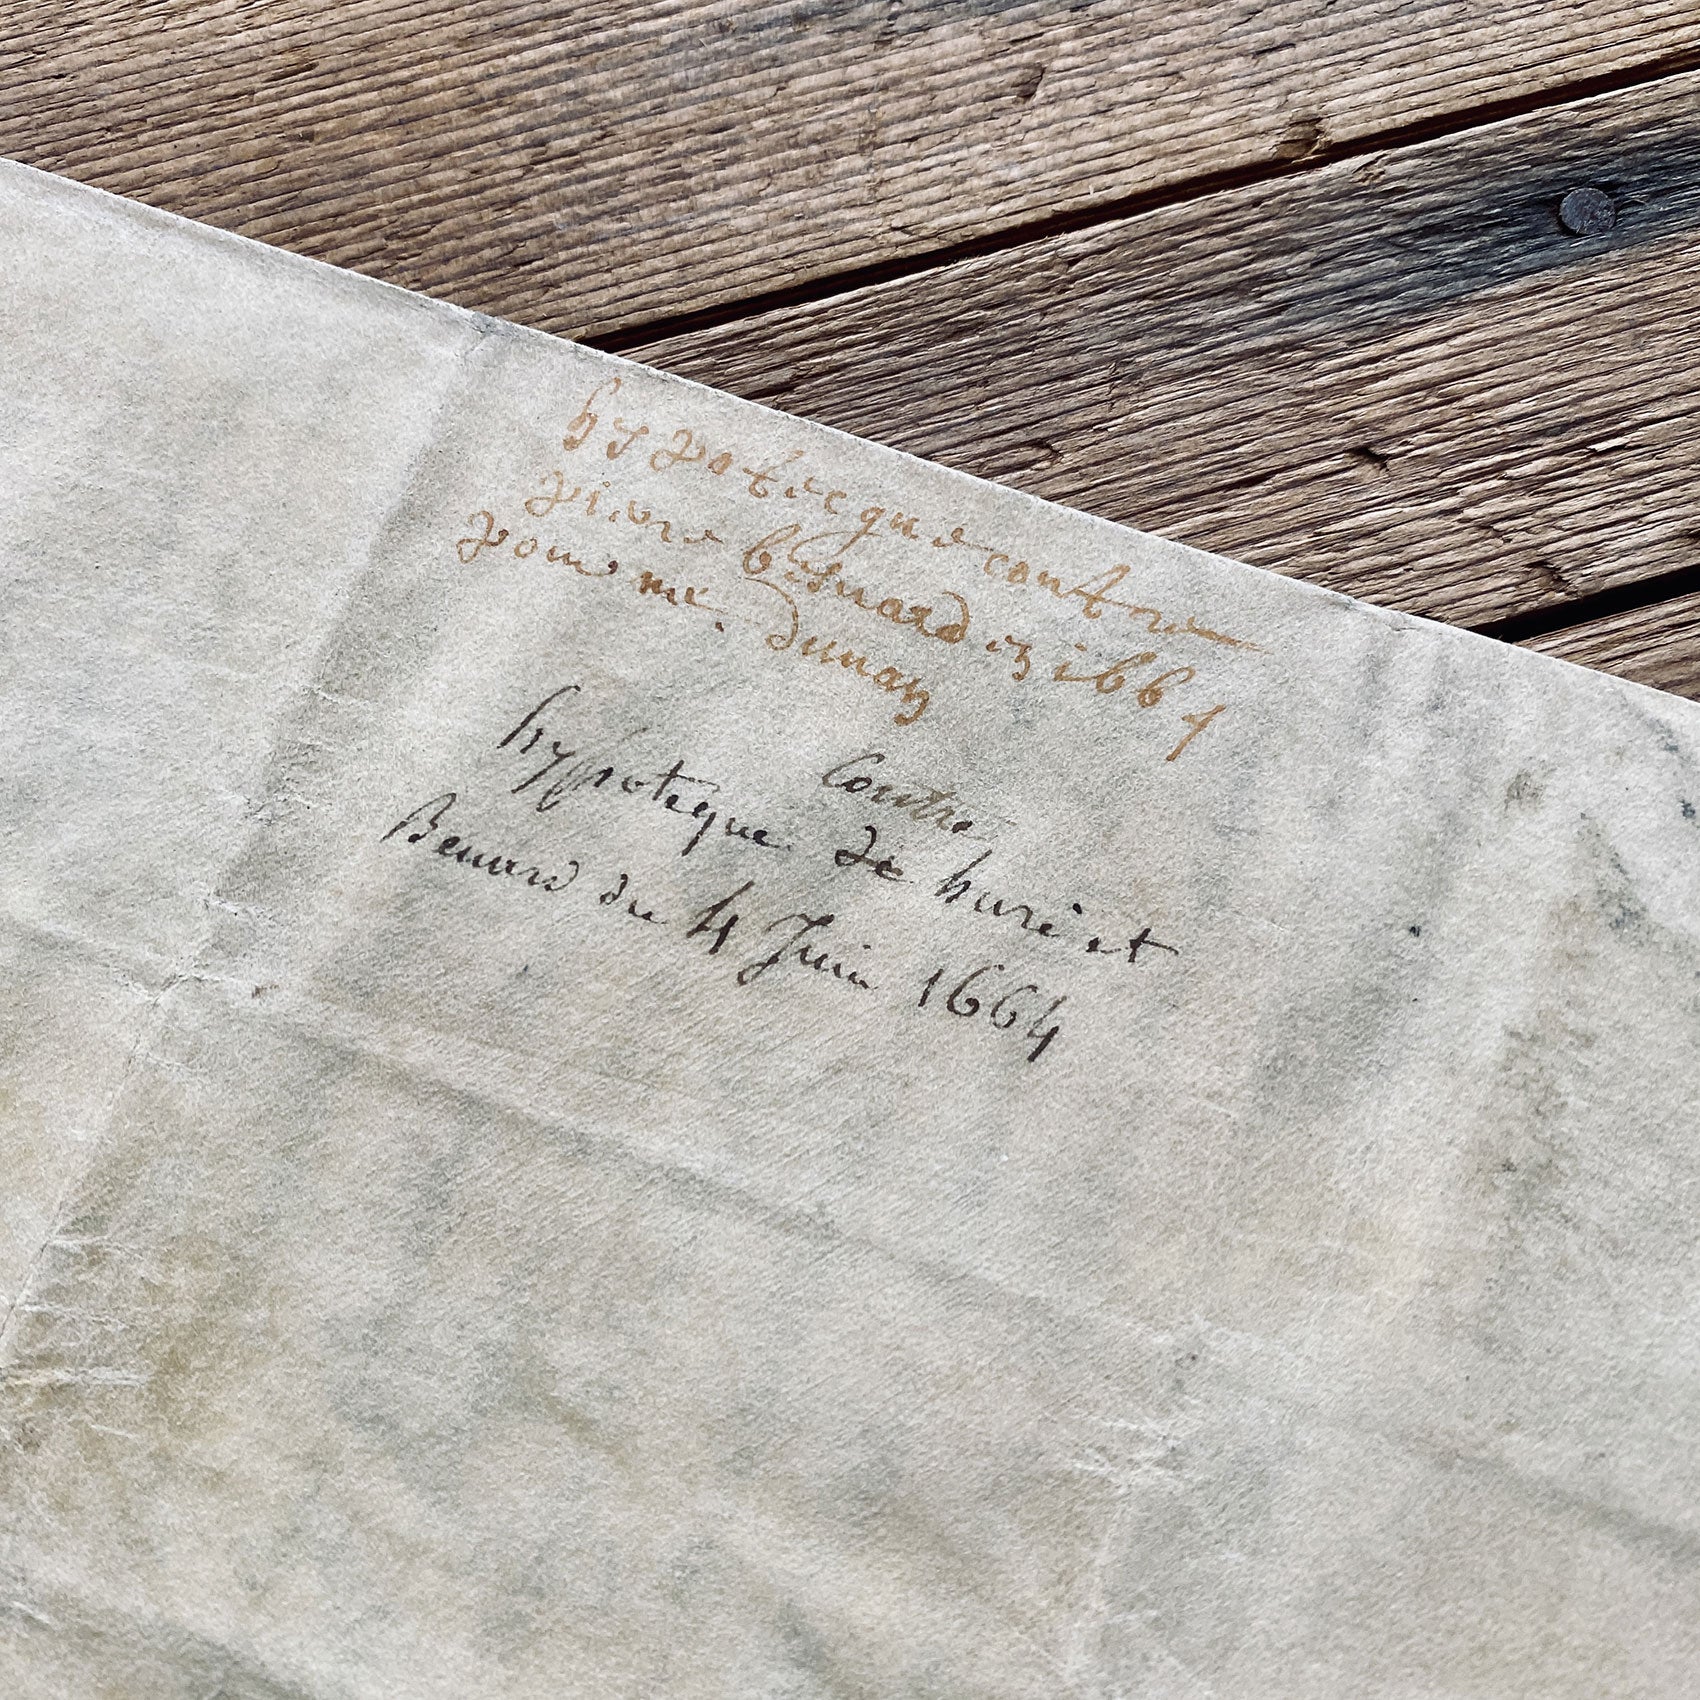 hypotecque contre
pierre besnard en 1664
pour me. dunay
contre
hypoteque de huré et
Benard du 4 Juin 1664